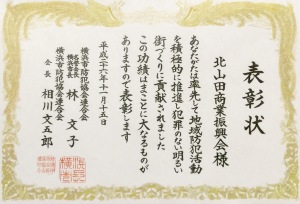 表彰状
北山田商業振興会様
あなたがたは率先して地域防犯活動
を積極的に推進し犯罪のない明るい
街づくりに貢献されました
この功績はまことに大なるものが
ありますので表彰します
平成二十六年十一月十五日
横浜市防犯協会連合会
名誉会長
横浜市長 林 文子
横浜市防犯協会連合会
会長 相川文五郎